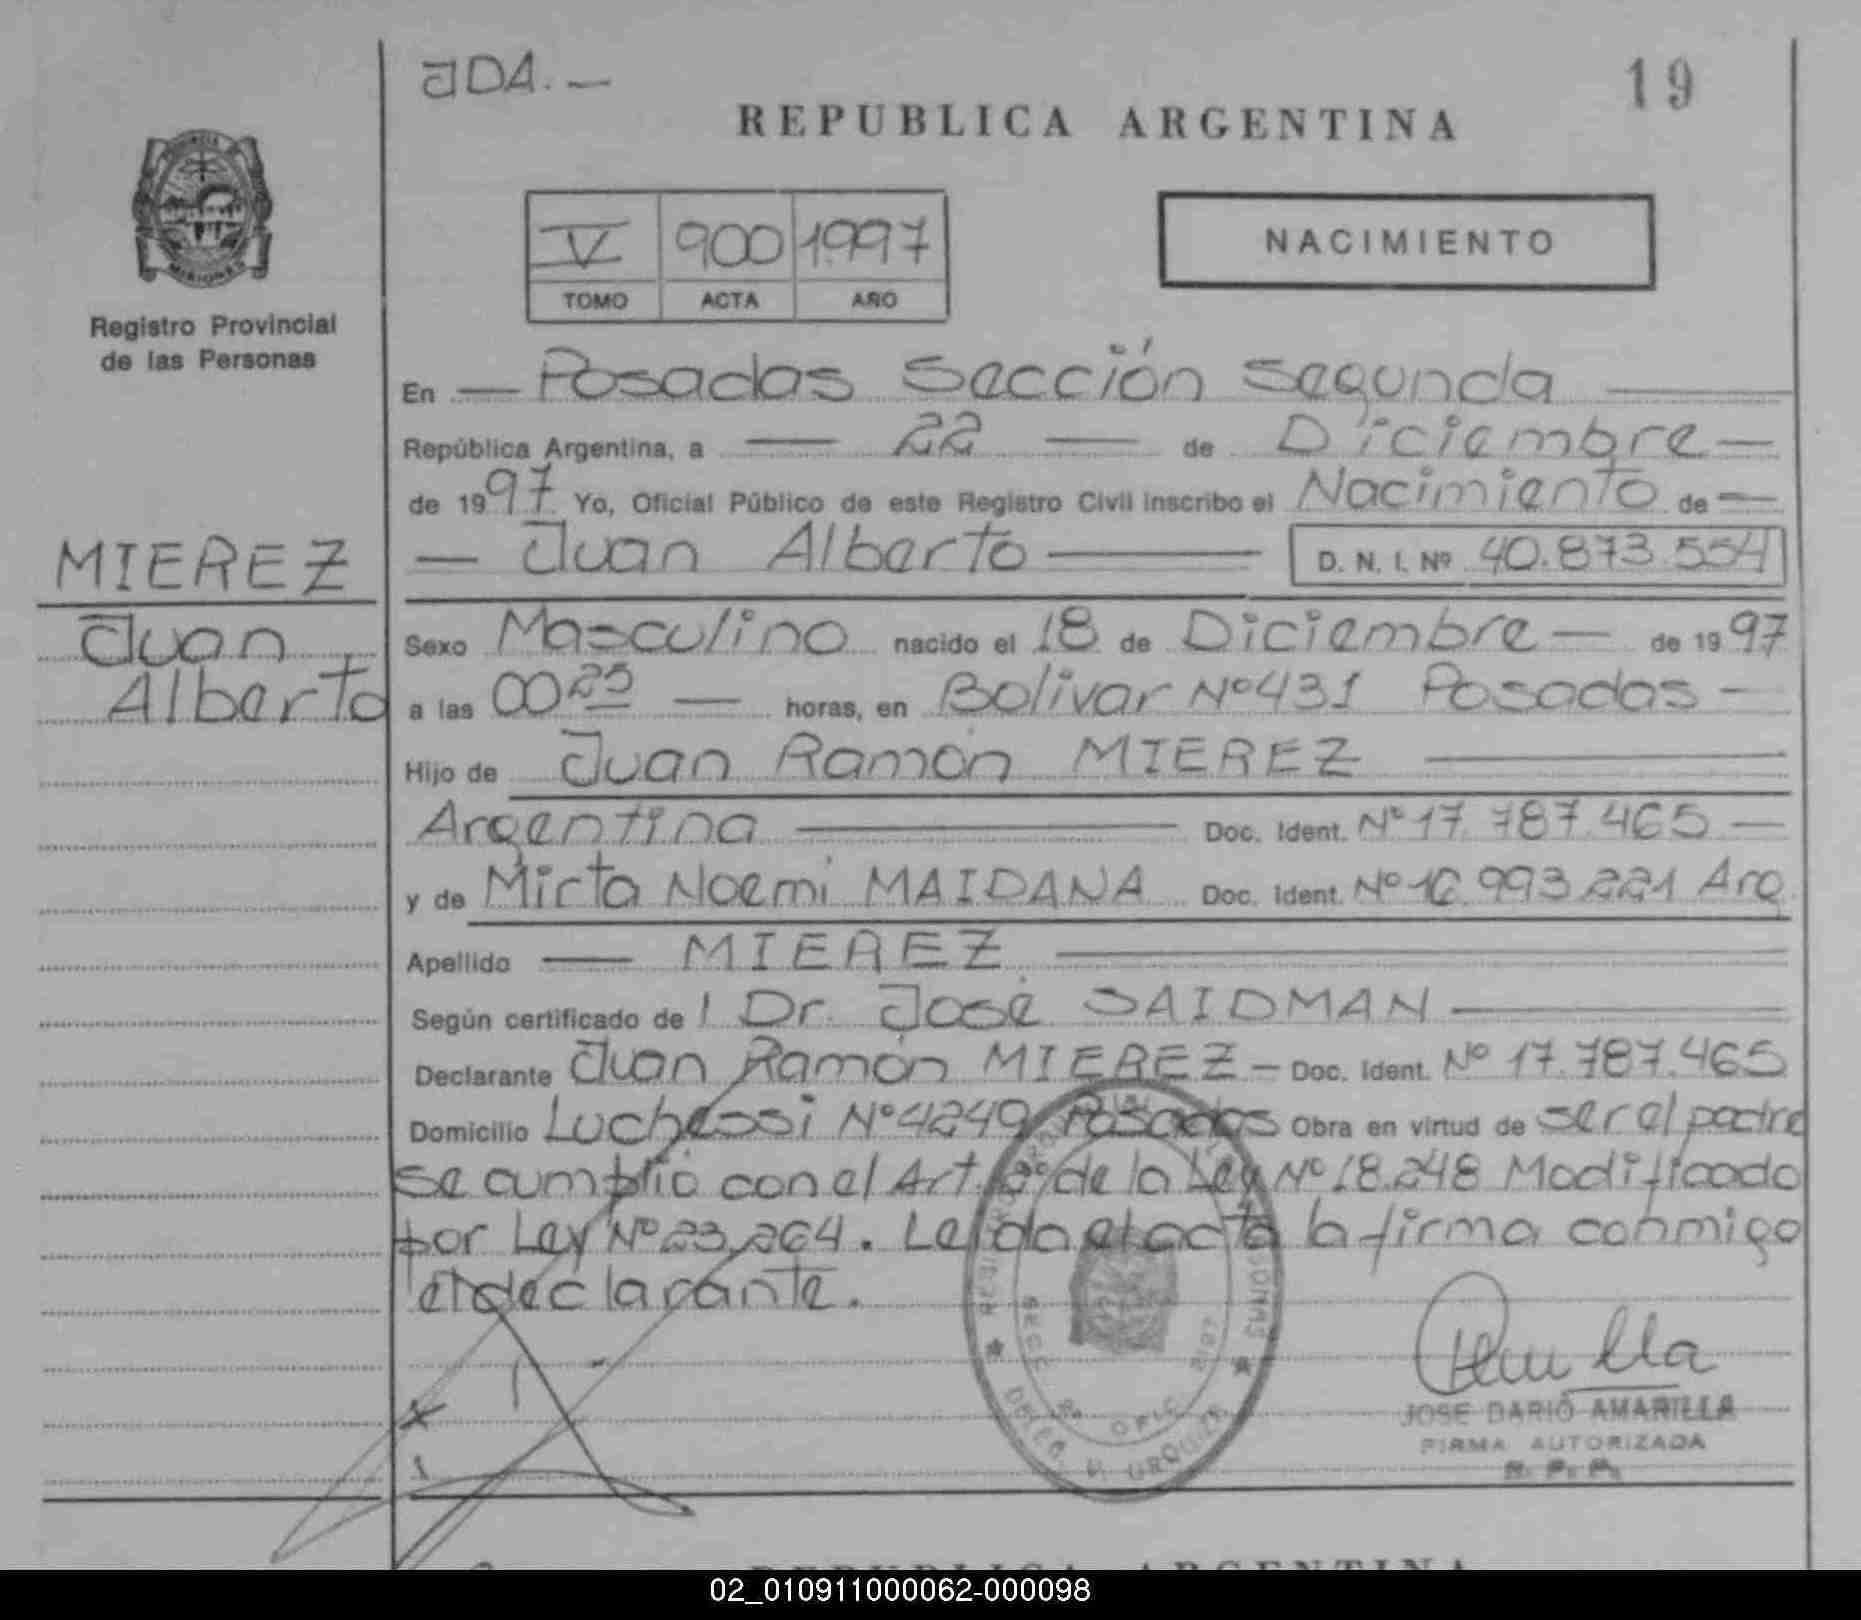 JDA.-
19
REPUBLICA ARGENTINA
V 900 1997
TOMO ACTA AÑO
NACIMIENTO
PROVINCIA DE MISIONES
Registro Provincial
de las Personas
MIEREZ
Juan
Alberto
En — Posadas Sección Segunda —
República Argentina, a — 22 — de Diciembre —
de 1997 Yo, Oficial Público de este Registro Civil inscribo el Nacimiento de —
— Juan Alberto — D. N. I. Nº 40.873.554
Sexo Masculino nacido el 18 de Diciembre — de 1997
a las 00 25 — horas, en Bolivar Nº 431 Posadas —
Hijo de Juan Ramón MIEREZ —
Argentina — Doc. Ident. Nº 17.787.465 —
y de Mirta Noemí MAIDANA Doc. Ident. Nº 16.993.221 Arg.
Apellido — MIEREZ —
Según certificado de l Dr. José SAIDMAN —
Declarante Juan Ramón MIEREZ — Doc. Ident. Nº 17.787.465
Domicilio Luchessi Nº 4249 Posadas Obra en virtud de ser el padre
se cumplió con el Art. 2º de la Ley Nº 18.248 Modificado
por Ley Nº 23.264. Leida el acta la firma conmigo
el declarante.
JOSE DARIO AMARILLA
FIRMA AUTORIZADA
R. P. P.
SECC 2ª OFIC. 2197
DELEG. V. URQUIZA
REPUBLICA ARGENTINA
02_010911000062-000098